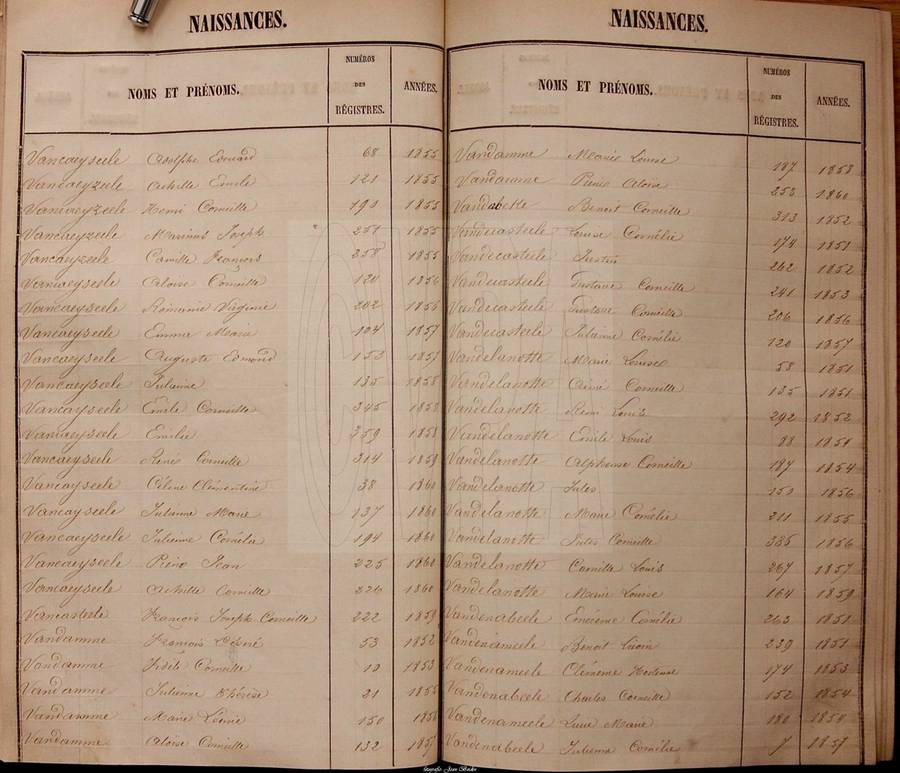 NAISSANCES.
NOMS ET PRÉNOMS. NUMÉROS DES RÉGISTRES. ANNÉES.
Vancaeyseele Adolphe Edouard 68 1855
Vancaeyzeele Achille Emile 121 1855
Vancaeyzeele Henri Corneille 190 1855
Vancaeyzeele Marinus Joseph 251 1855
Vancaeyzeele Camille François 258 1855
Vancaeyseele Aloise Corneille 120 1856
Vancaeyseele Romanie Virginie 202 1856
Vancaeyseele Emma Marie 104 1857
Vancaeyseele Auguste Edmond 153 1857
Vancayseele Julianne 135 1858
Vancayseele Emile Corneille 345 1858
Vancaeyseele Emilie 359 1858
Vancaeyseele René Corneille 314 1859
Vancayseele Clémentine 38 1860
Vancayseele Julianne Marie 137 1860
Vancaeyseele Julienne Cornélia 194 1860
Vancaeyseele Jean 225 1860
Vancaeyseele Achille Corneille 226 1860
Vancasteele François Joseph Corneille 222 1859
Vandamme François 53 1852
Vandamme Fidèle Corneille 10 1853
Vandamme Julienne Thérèse 21 1855
Vandamme Marie Léonie 150 1856
Vandamme Aloise Corneille 132 1857
NAISSANCES.
NOMS ET PRÉNOMS. NUMÉROS DES RÉGISTRES. ANNÉES.
Vandamme Marie Louise 187 1858
Vandamme Aloise 253 1860
Vandabeele Benoit Corneille 313 1852
Vandecasteele Louise Cornélie 174 1851
Vandecasteele Justin 262 1852
Vandecasteele Gustave Corneille 241 1853
Vandecasteele Gustave Corneille 206 1856
Vandecasteele Julianne Cornélie 120 1857
Vandelanotte Marie Louise 58 1851
Vandelanotte Aimé Corneille 135 1851
Vandelanotte Henri Louis 292 1852
Vandelanotte Emile Louis 88 1854
Vandelanotte Alphonse Corneille 187 1854
Vandelanotte Jules 151 1856
Vandelanotte Marie Cornélie 211 1855
Vandelanotte Jules Corneille 335 1856
Vandelanotte Camille Louis 267 1857
Vandelanotte Marie Louise 164 1859
Vandenabeele Cornélie 263 1851
Vandenameele Benoit 239 1851
Vandenameele Clémence Hortense 174 1853
Vandenabeele Charles Corneille 152 1854
Vandenameele Marie 180 1854
Vandenabeele Julienne Cornélie 7 1857